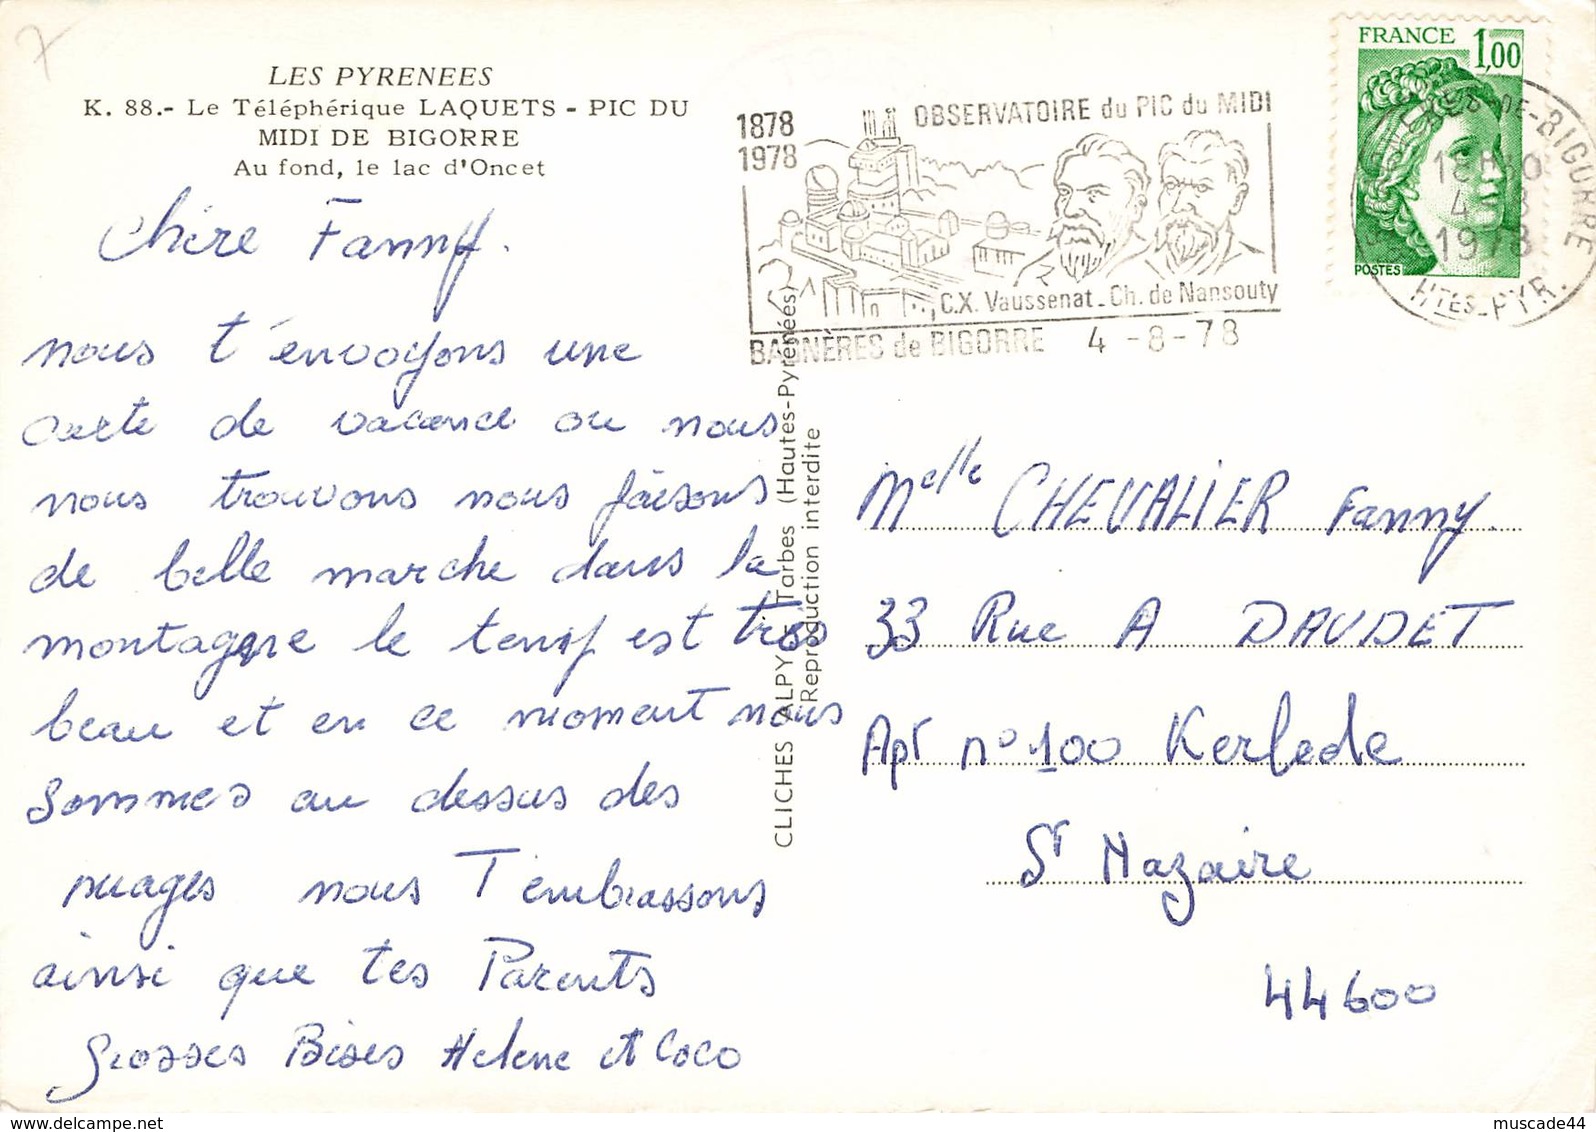 7
LES PYRENEES
K. 88.- Le Téléphérique LAQUETS - PIC DU
MIDI DE BIGORRE
Au fond, le lac d'Oncet
Chère Fanny.
nous t'envoyons une
carte de vacance ou nous
nous trouvons nous faisons
de belle marche dans la
montagne le temps est très
beau et en ce moment nous
sommes au dessus des
nuages nous T'embrassons
ainsi que tes Parents
Grosses Bises Helene et Coco
CLICHES ALPY Tarbes (Hautes-Pyrénées)
Reproduction interdite
1878
1978
OBSERVATOIRE du PIC du MIDI
C.X. Vaussenat - Ch. de Nansouty
BAGNÈRES de BIGORRE 4-8-78
FRANCE 1,00
POSTES
DE-BIGORRE
4-8
1978
HTES-PYR.
Melle CHEVALIER Fanny.
33 Rue A DAUDET
Apt n° 100 Kerlede
St Nazaire
44600
www.delcampe.net
muscade44